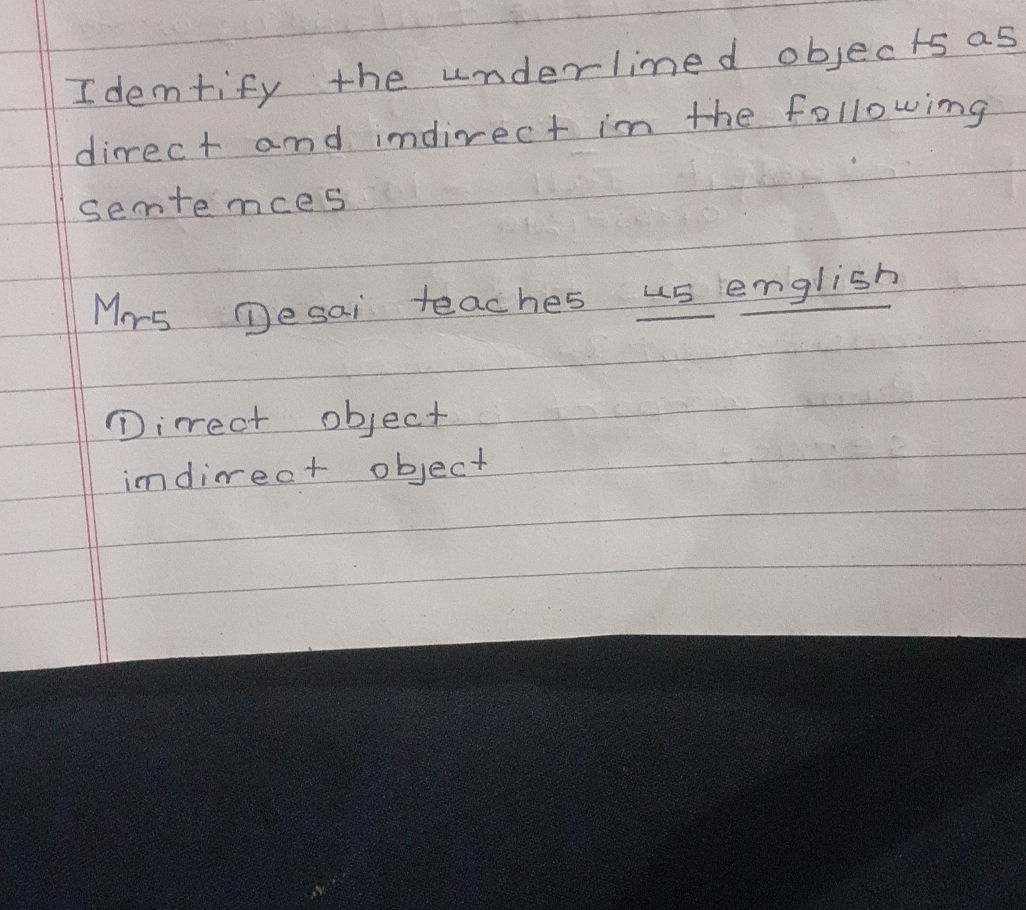 Identify the underlined objects as
direct and indirect in the following
sentences
Mrs Desai teaches us english
Direct object
indirect object